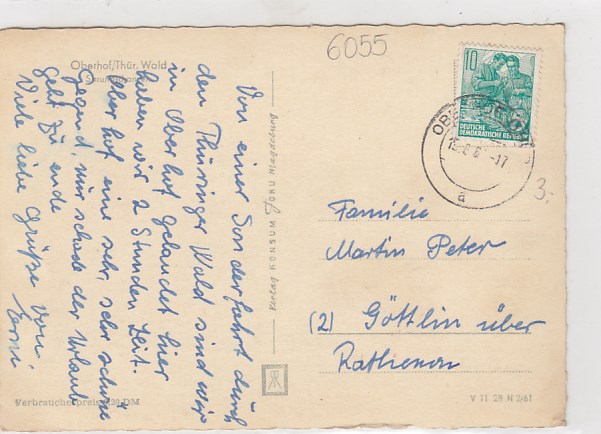 6055
Oberhof/Thür. Wald
Von einer Sonderfahrt durch
den Thüringer Wald sind wir
in Oberhof gelandet hier
haben wir 2 Stunden Zeit.
Oberhof eine sehr sehr schöne
Gegend, nur schade der Urlaub
geht zu ende
Viele liebe Grüße von
Verbraucherpreis DM
KONSUM
10
DEUTSCHE
DEMOKRATISCHE REPUBLIK
a
3.-
Familie
Martin Peter
(2) Göttlin über
Rathenow
V 11 28 N 2/61